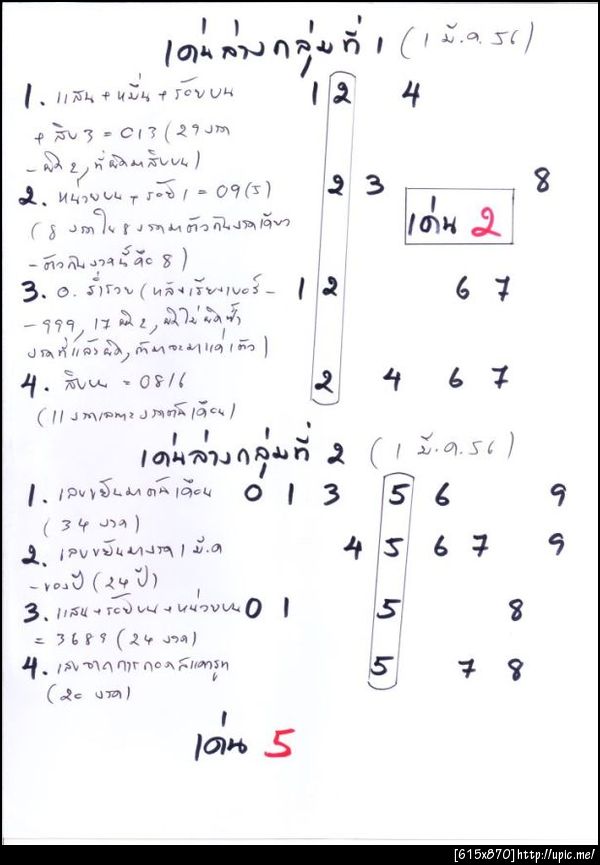 เด่นล่างกลุ่มที่ 1 (1 มี.ค. 56)
1. แสน + หมื่น + ร้อยบน 1 2 4
+ สิบ 3 = 013 (29 งวด
- ผิด 2, ที่ผิดมาสิบบน)
2. หน่วยบน + ร้อย 1 = 09(5) 2 3 8
(8 งวดใน 8 งวดมาตัวกันงวดเดียว เด่น 2
- ตัวกันงวดนี้คือ 8)
3. อ. ร่ำรวย (หลังเรียงเบอร์ - 1 2 6 7
- 999, 17 ผิด 2, ผิดไม่ผิดซ้ำ
งวดที่แล้วผิด,
4. สิบบน = 0816 2 4 6 7
(11 งวดเฉพาะงวดต้นเดือน)
เด่นล่างกลุ่มที่ 2 (1 มี.ค. 56)
1. เลขขยันมาต้นเดือน 0 1 3 5 6 9
(34 งวด)
2. เลขขยันมางวด 1 มี.ค 4 5 6 7 9
- ของปี (24 ปี)
3. แสน + ร้อยบน + หน่วยบน 0 1 5 8
= 3689 (24 งวด)
4. เลขจากการถอดสแควรูท 5 7 8
(20 งวด)
เด่น 5
[615x870]http://upic.me/